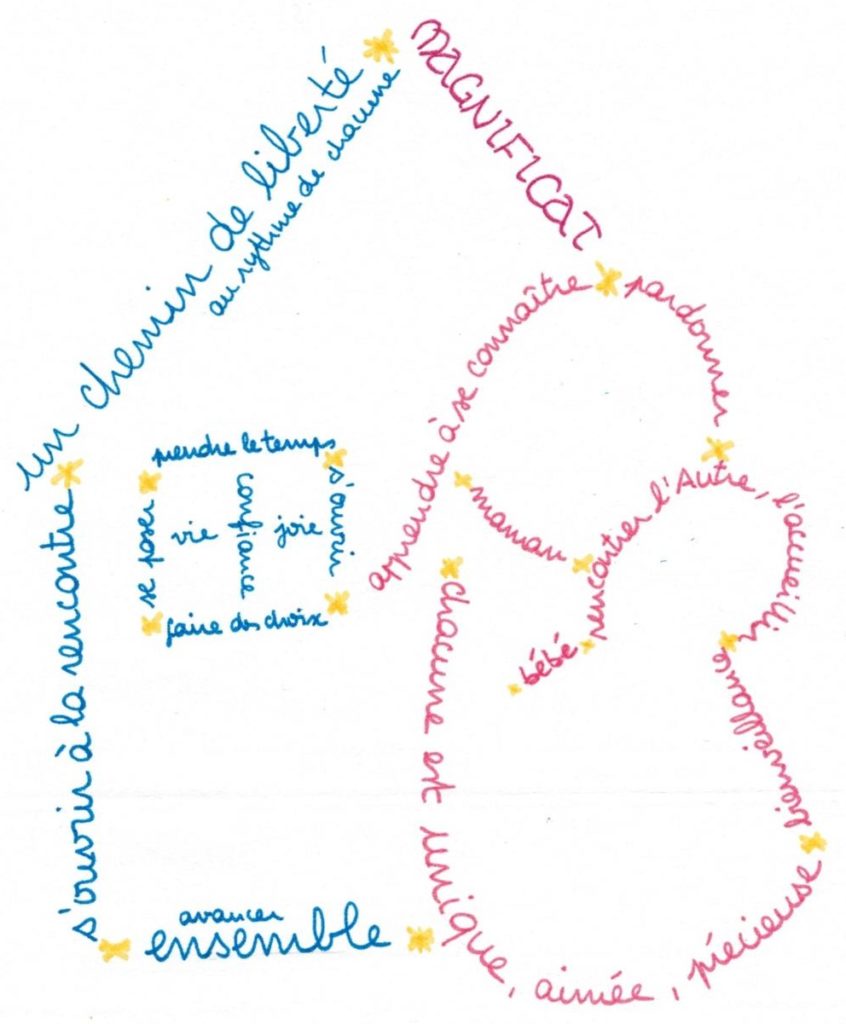 MAGNIFICAT
un chemin de liberté
au rythme de chacune
apprendre à se connaître
pardonner
prendre le temps
s'ouvrir
se poser
vie
confiance
joie
faire des choix
maman
rencontrer l'Autre, l'accueillir
bébé
bienveillance
s'ouvrir à la rencontre
chacune est unique, aimée, précieuse
avancer
ensemble